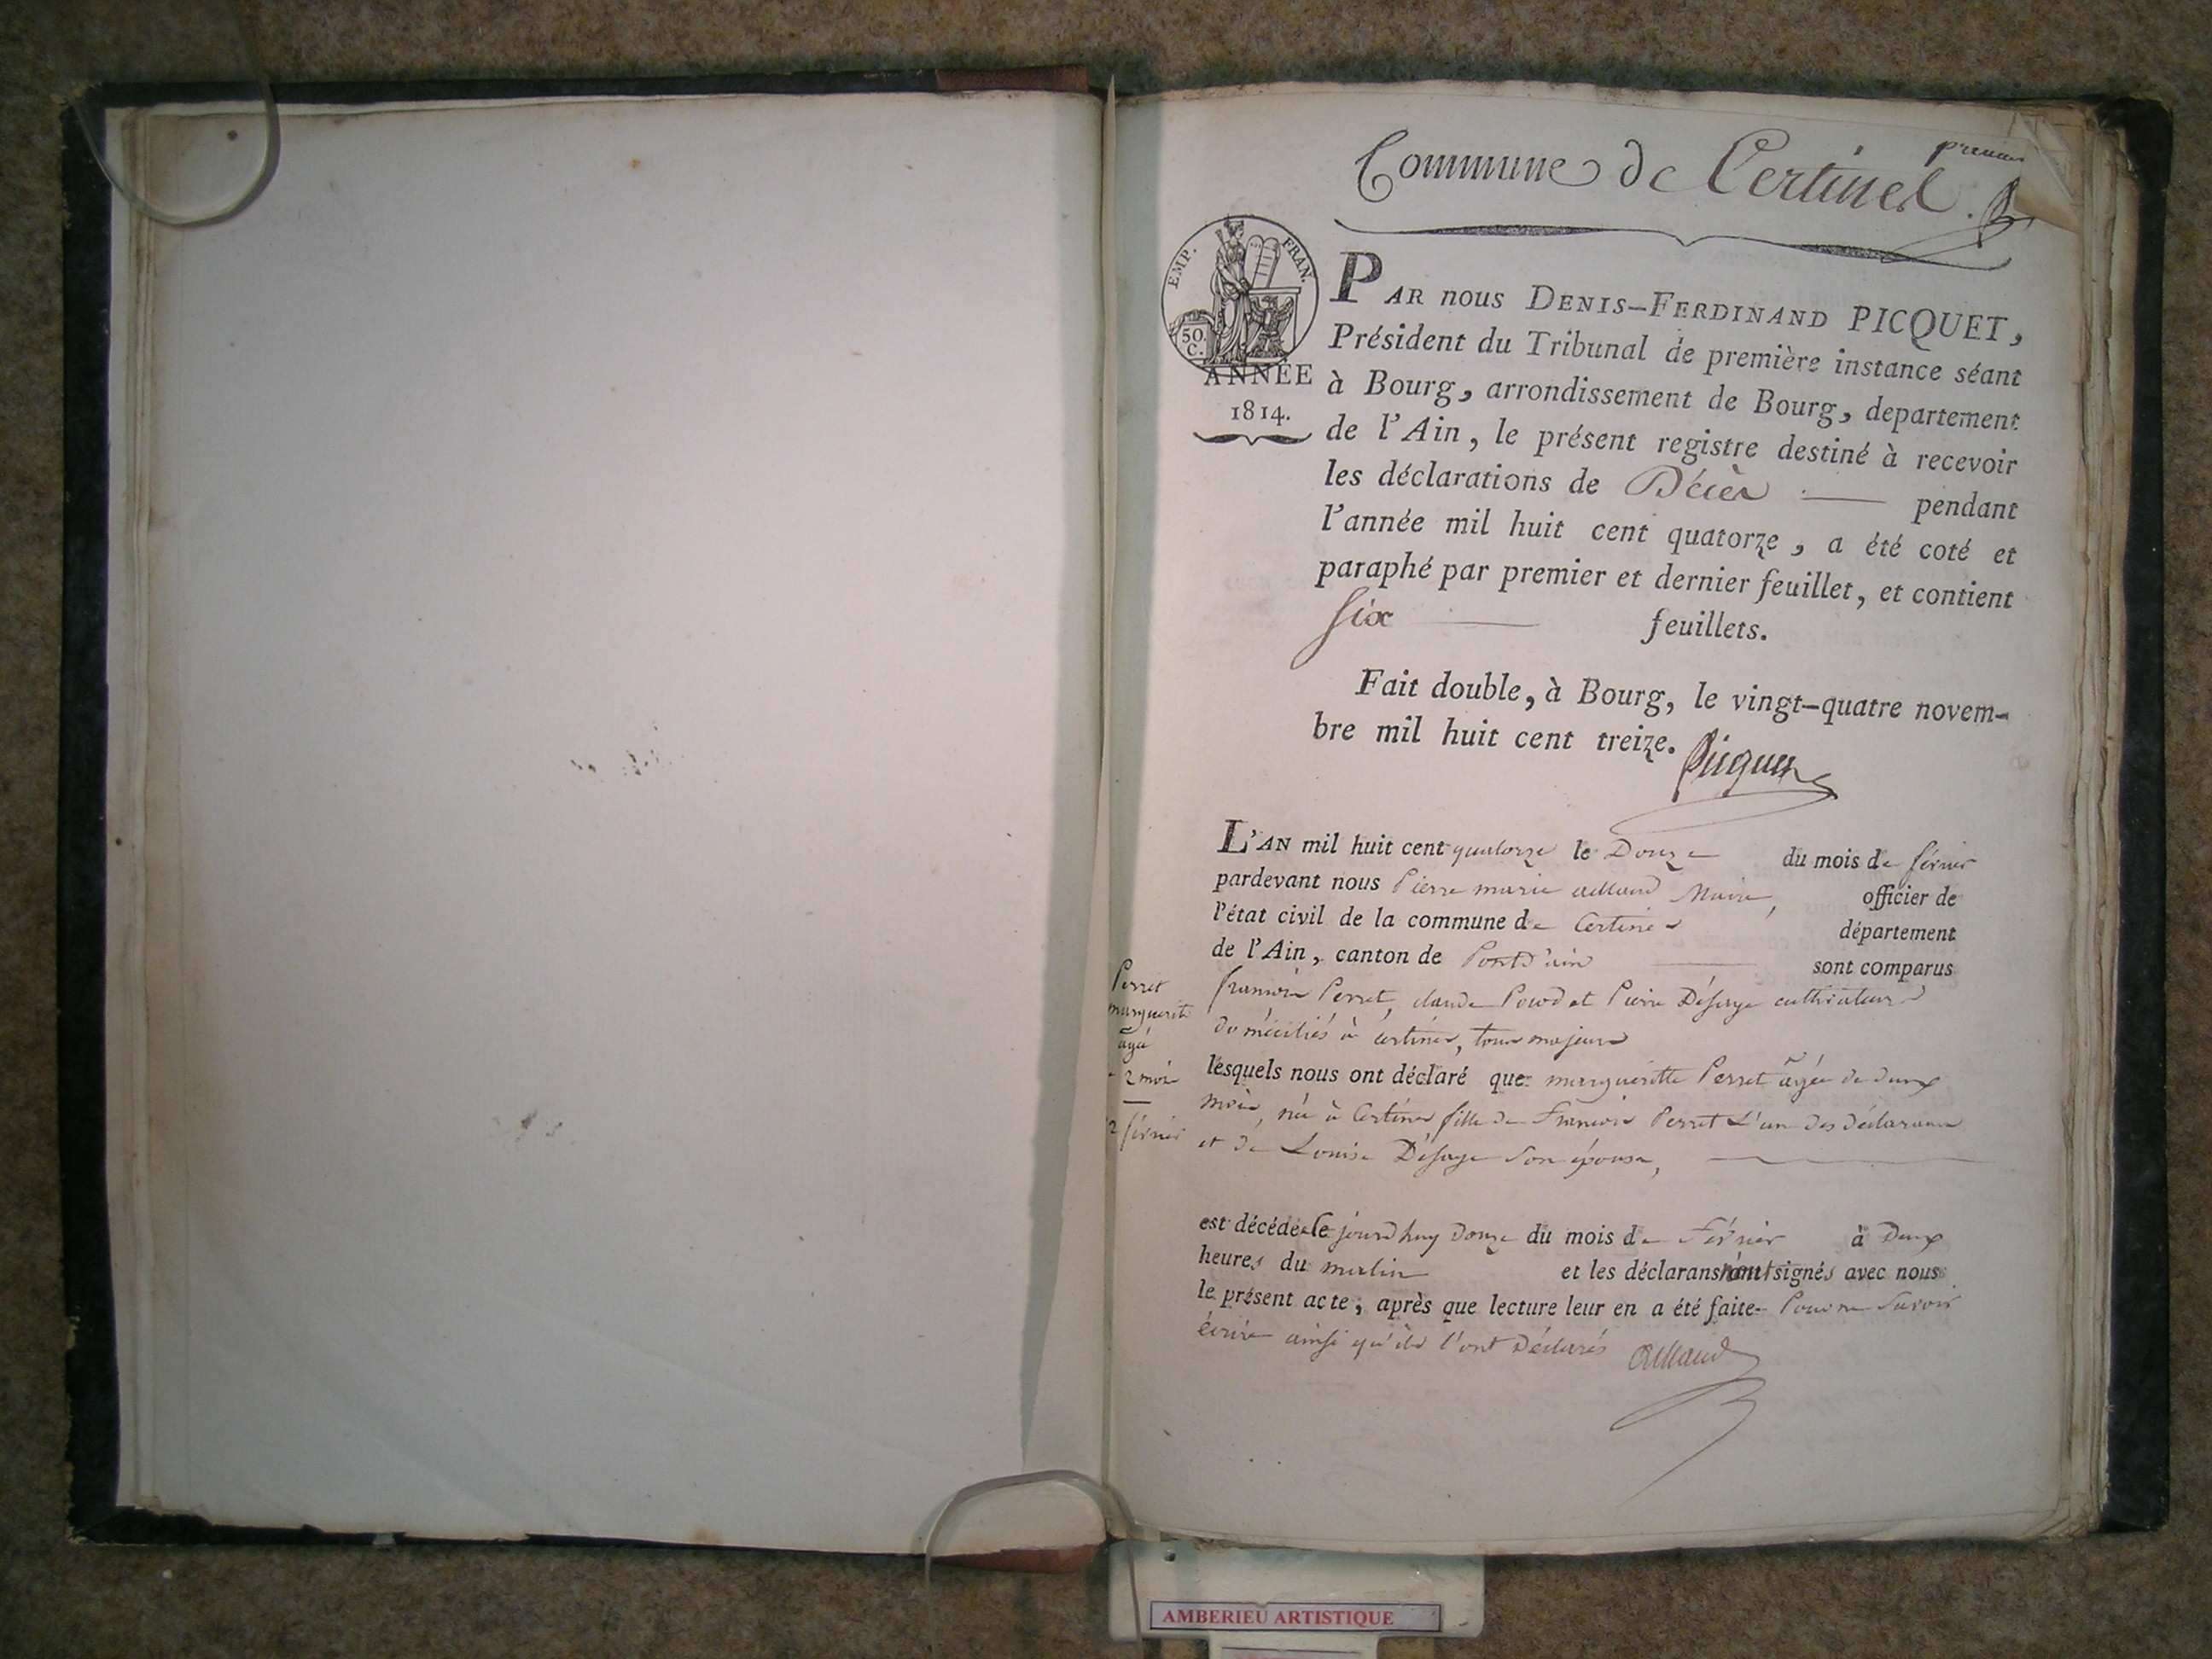 premier
Commune de Certines.
EMP. FRAN.
50.
C.
ANNÉE
1814.
PAR nous DENIS-FERDINAND PICQUET,
Président du Tribunal de première instance séant
à Bourg, arrondissement de Bourg, departement
de l'Ain, le présent registre destiné à recevoir
les déclarations de Décès pendant
l'année mil huit cent quatorze, a été coté et
paraphé par premier et dernier feuillet, et contient
six feuillets.
Fait double, à Bourg, le vingt-quatre novem-
bre mil huit cent treize. Picquet
L'AN mil huit cent quatorze le Douze du mois de février
pardevant nous Pierre marie Maire, officier de
l'état civil de la commune de Certines département
de l'Ain, canton de Pontd'ain sont comparus
françois Perret, claude et Pierre Désaye cultivateurs
domiciliés à certines, tous majeurs
lesquels nous ont déclaré que margueritte Perret âgée de deux
mois, née à Certines fille de François Perret L'un des déclarans
et de Louise Désaye Son épouse,
est décédée le jourdhuy douze du mois de Février à Deux
heures du matin et les déclarans n'ont signés avec nous
le présent acte, après que lecture leur en a été faite Pour ne Savoir
écrire ainsi qu'ils l'ont Déclarés
Perret
marguerite
âgé
2 mois
2 février
AMBERIEU ARTISTIQUE